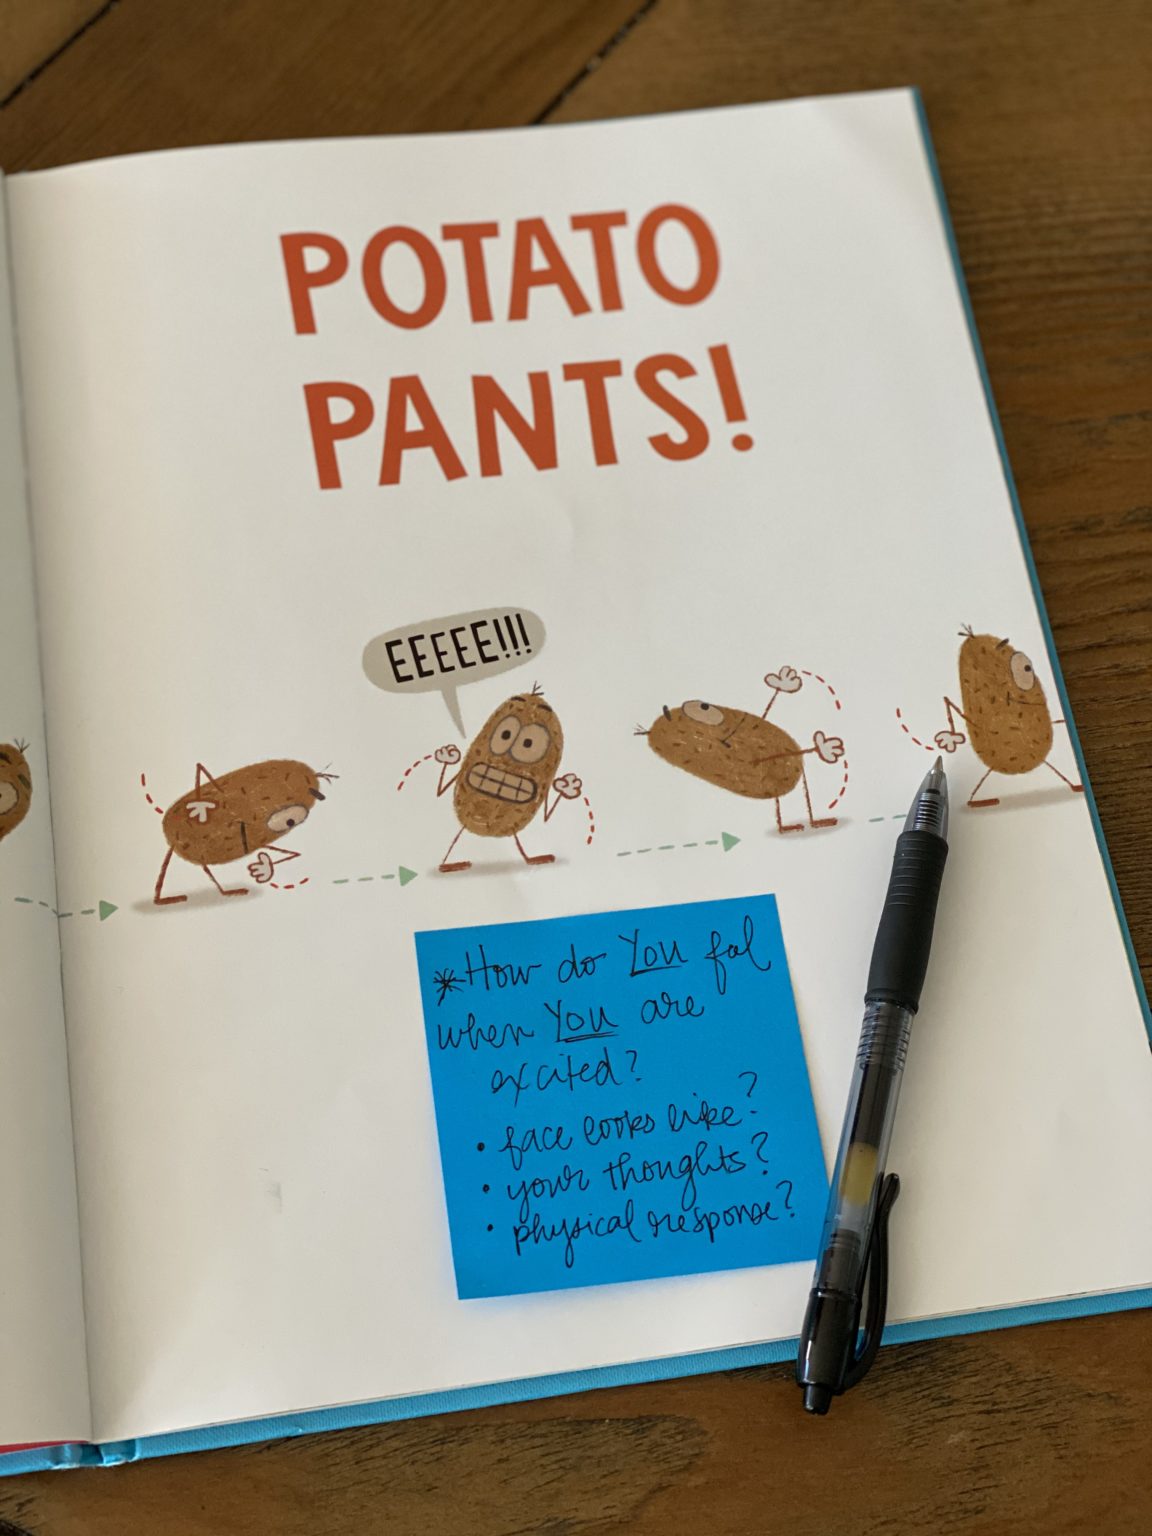 POTATO
PANTS!
EEEEE!!!
*How do You feel
when You are
excited?
• face looks like?
• your thoughts?
• physical response?